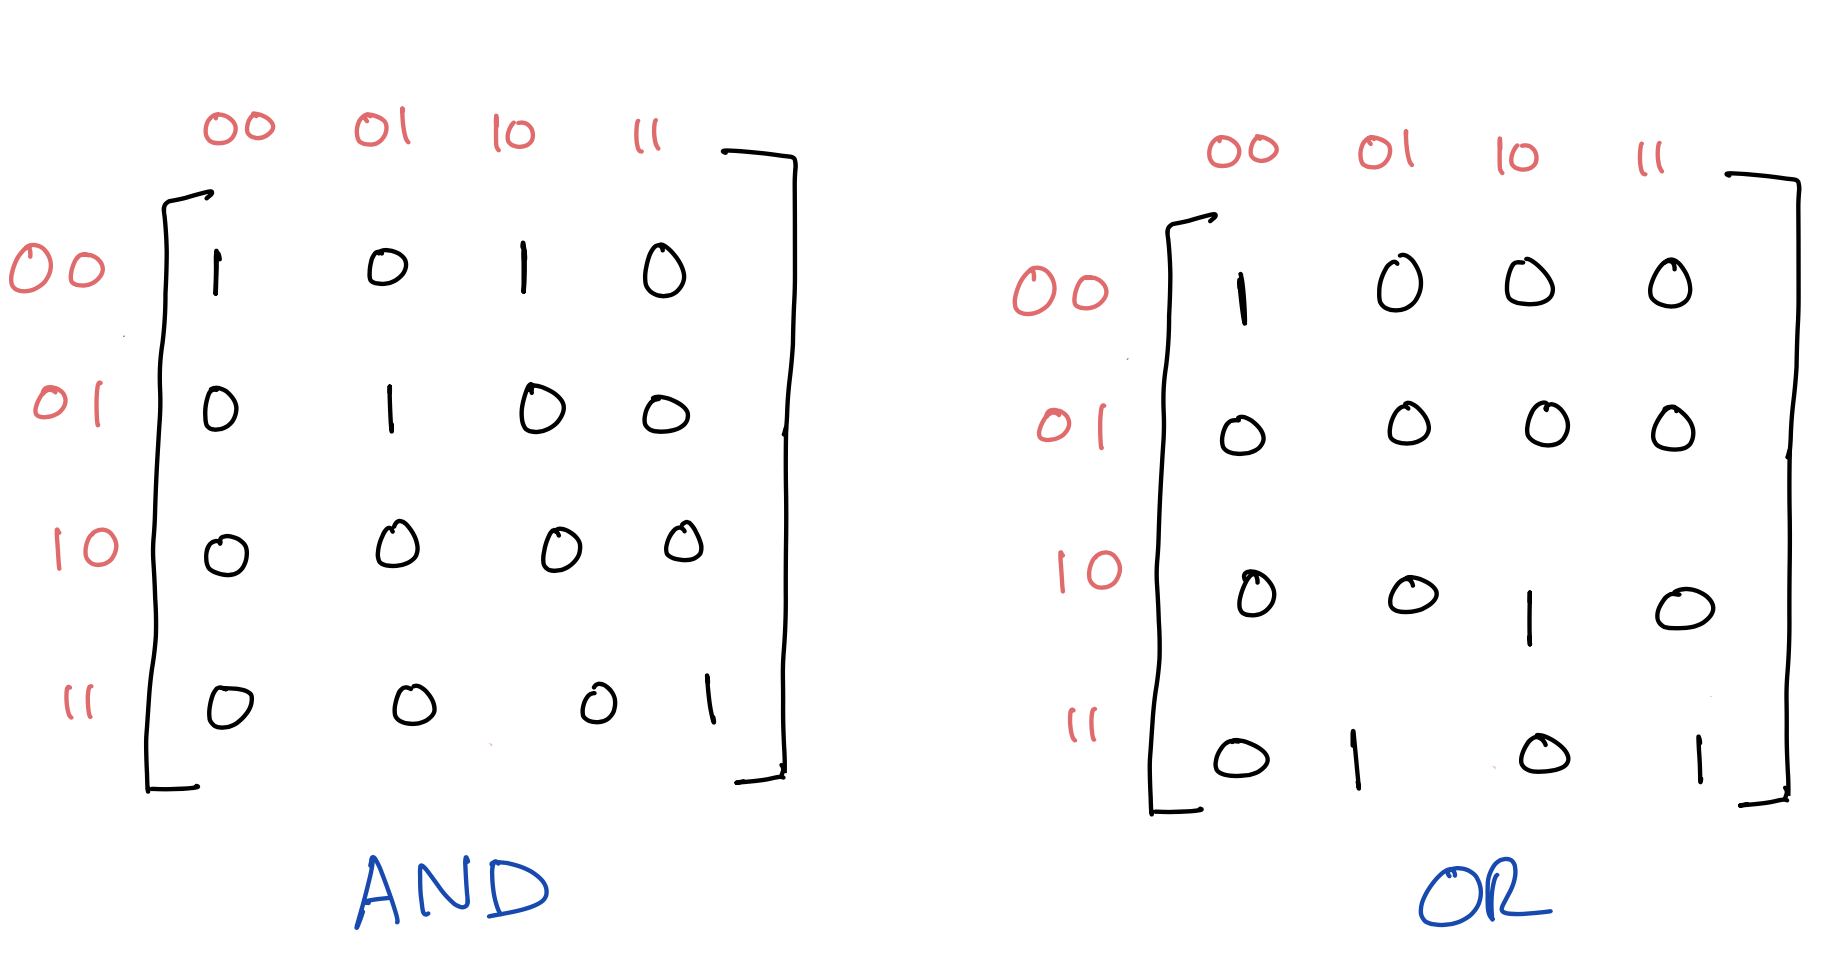 00 01 10 11
00 1 0 1 0
01 0 1 0 0
10 0 0 0 0
11 0 0 0 1
AND
00 01 10 11
00 1 0 0 0
01 0 0 0 0
10 0 0 1 0
11 0 1 0 1
OR